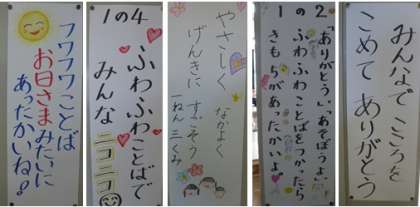 フワフワことば
お日さまみたいに
あたたかいね！
1の4
ふわふわことばで
みんな
ニコニコ
やさしく なかよく
げんきに すごそう
一ねん 三くみ
1の2
「ありがとう」「あそぼうよ」
ふわふわことばをつかったら
きもちがあったかいよ
みんなで こころを
こめて ありがとう